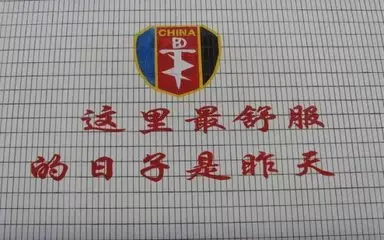 CHINA
BD
这里最舒服
的日子是昨天